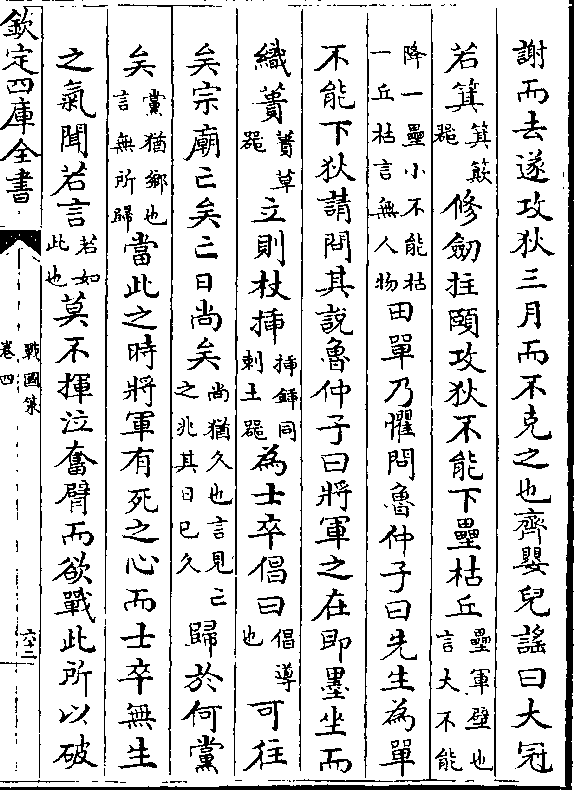 謝而去遂攻狄三月而不克之也齊嬰兒謡曰大冠
若箕箕簸器修劒拄頤攻狄不能下壘枯丘壘軍壁也言大不能
降一壘小不能枯一丘枯言無人物田單乃懼問魯仲子曰先生為單
不能下狄請問其說魯仲子曰將軍之在即墨坐而
織蕢蕢草器立則杖揷揷鍤同刺土器為士卒倡曰倡導也可往
矣宗廟亡矣亡日尚矣尚猶久也言見亡之兆其日已久歸於何黨
矣黨猶鄉也言無所歸當此之時將軍有死之心而士卒無生
之氣聞若言若如此也莫不揮泣奮臂而欲戰此所以破
欽定四庫全書
戰國策
卷四